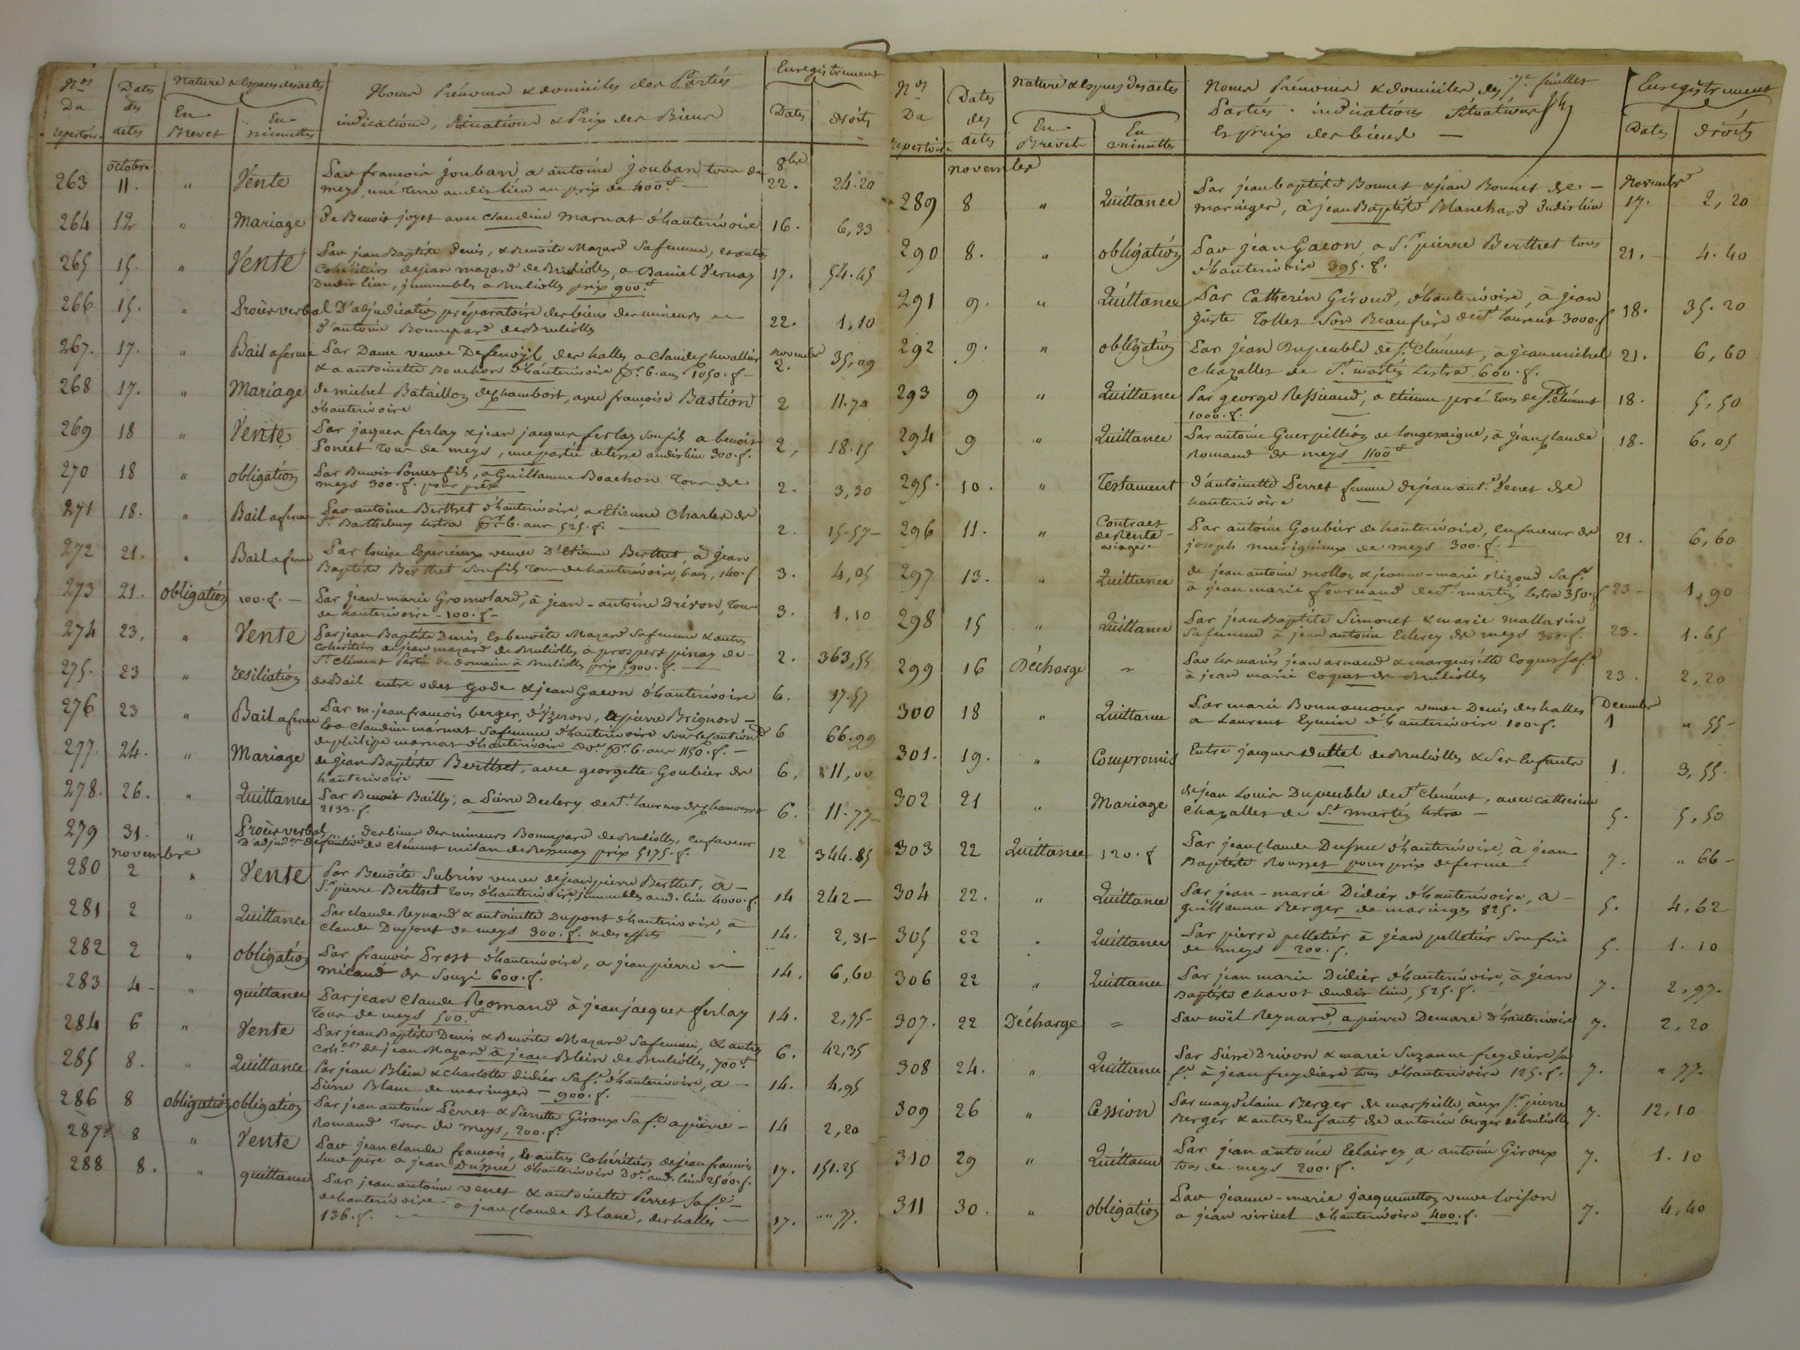 Nos Du repertoire
Dates des actes
Nature & Especes des actes
En Brevet
En minuttes
Noms Prénoms & domiciles des Parties
indications, Situations & Prix des Biens
Enregistrement
Dates
droits
octobre
8bre
263 11. " Vente Par francois jouban a antoine jouban tous de 22. 24.20
meys, une terre audit lieu au prix de 400f
264 12 " Mariage de Benoit joyet avec Claudine Marnat d'hauterivoire 16. 6,33
265 15. " Vente Par jean Baptiste Denis, & Benoite Mazard sa femme, et autres 17. 54.45
Cohéritiers de jean mazard de Brulioles, a Daniel Vernay
Dudit lieu, immeubles a Brulioles prix 900f
266 15. " Procès verbal D'adjudication préparatoire des biens des mineurs 22. 1,10
d'antoine Bonnepard de Brulioles
novembre
267. 17. " Bail a ferme Par Dame veuve des halles a Claude chevallier 2. 35,09
& a antoinette Bouchon d'hauterivoire pr. 6. ans 1050.f.
268 17. " Mariage de michel Bataillon de chambost, avec françoise Bastion 2 11.70
d'hauterivoire
269 18 " Vente Par jaques ferlay & jean jacques ferlay son fils a benoit 2, 18.15
Poncet Tous de meys, une partie de terre audit lieu 300.f.
270 18 " obligation Par Benoit Poncet fils, a Guillaume Boachon Tous de 2. 3,30
meys 300.f. pour prêt
271 18. " Bail a ferme Par antoine Berthet d'hauterivoire, a Etienne Charles de 2. 15-57-
St Barthelemy lestra pr. 6. ans 525.f.
272 21. " Bail a ferme Par louise veuve D'Etienne Berthet à jean 3. 4,05
Baptiste Berthet son fils Tous de hauterivoire, 6 ans, 140.f
273 21. obligation 100.f. Par jean-marie Gromolard, à jean-antoine Drivon, Tous 3. 1.10
de hauterivoire - 100.f.-
274 23. " Vente Par jean Baptiste Denis, & benoite Mazard sa femme & autres 2. 363,55
cohéritiers de jean mazard de Brulioles à prosper pinay de
St Clément Partie de domaine à Brulioles prix 5900.f.
275. 23 " résiliation de Bail entre odet Gode & jean Gacon d'hauterivoire 6. 17.57
276 23 " Bail a ferme Par m. jean francois berger, d'yzeron, a pierre Brignon 6 66.99
& a Claudine marnat sa femme d'hauterivoire sous le cautiont
de philipe marnat d'hauterivoire pr. 6. ans 1150.f.
277. 24. " Mariage de jean Baptiste Berthet, avec georgette Goubier de 6. 11,00
hauterivoire
278. 26. " Quittance Par Benoit Bailly, a Pierre Declery de St. laurent de chamousset 6. 11.77-
2133.f.
279 31. " Procès verbal des biens des mineurs Bonnepard de Brulioles, en faveur 12 344.85
D'adjudon définitive de Clément milan de Bessenay prix 5175.f.
novembre
280 2 " Vente Par Benoite Subrin veuve de jean pierre Berthet, à 14 242-
St pierre Berthet tous d'hauterivoire, immeubles aud. lieu 4000.f.
281 2 " Quittance Par claude Reynard & antoinette Dupont d'hauterivoire, à 14. 2,31-
Claude Dupont de meys 300.f. & des effets
282 2 " obligation Par francois Prost d'hauterivoire, a jean pierre 14. 6,60
milaud de Souzi 600.f.
283 4 " quittance Par jean Claude Romand à jean jacques ferlay 14. 2,75-
Tous de meys 500.f
284 6 " Vente Par jean Baptiste Denis & Benoite Mazard sa femme, & autres 6. 42,35
cohers. de jean Mazard à jean Blein de Brulioles, 700f
285 8. " Quittance Par jean Blein & charlotte didier sa fe. d'hauterivoire, a 14. 4,95
Pierre Blanc de maringes - 900.f.
286 8 obligation obligation Par jean antoine Perret & Pierrette Giroux sa fe. a pierre 14 2,20
Romand Tous de meys, 200.f.
287 8 " Vente Par jean claude francois, & autres Cohéritiers de jean francois 17. 151.25
leur père a jean Dusuc d'hauterivoire aud. lieu 2500.f.
288 8. " quittance Par jean antoine venet & antoinette Perret sa fe. 17. "" 77.
d'hauterivoire a jean claude Blanc, des halles
136.f.
Nos Du repertoire
Dates des actes
Nature & Especes des actes
En Brevet
En minutte
Noms Prénoms & domiciles des 7e feuillet
Parties. indications Situations
& prix des biens
Enregistrement
Dates
droits
novembre
Novembre
289 8 " Quittance Par jean baptiste Bonnet & jean Bonnet de 17. 2,20
maringes, à jean Baptiste Blanchard dudit lieu
290 8. " obligation Par jean Gacon a St pierre Berthet tous 21. 4.40
d'hauterivoire 395.f.
291 9. " Quittance Par Catherin Giroud, d'hauterivoire, à jean 18. 35.20
juste Tollet son Beaufrère de St laurent 3000.f
292 9. " obligation Par jean Dupeuble de St. Clément, a jean michel 21. 6,60
chazalles de St. martin lestra 600.f.
293 9 " Quittance Par george Ressicaud, a etienne pré tous de St. Clément 18. 5,50
1000.f.
294 9 " Quittance Par antoine Guerpillion de longessaigne, à jean claude 18. 6,05
Romand de meys 1100f
295. 10. " Testament d'antoinette Perret femme de jean ant.e Venet de
hauterivoire
296 11. " Contract de Rente viagere Par antoine Goubier de hauterivoire, en faveur de 21. 6,60
joseph murigneux de meys 300.f.
297 13. " Quittance de jean antoine mollon & jeanne-marie Rizoud sa fe. 23- 1,90
à jean marie fournand de St. martin lestra 350.f
298 15 " Quittance Par jean Baptiste Simonet & marie mallarin 23. 1.65
sa femme à jean antoine Eclerey de meys 300.f.
299 16 Décharge " Par les mariés jean arnaud & marguerite Coquet sa fe 23. 2,20
à jean marie Coquet de Brulioles
Decembre
300 18 " Quittance Par marie Bonnamour veuve Denis des halles 1 " 55-
a Laurent Eymin d'hauterivoire 100.f.
301. 19. " Compromis Entre jacques duttel de Brulioles & ses Enfants 1. 3,55.
302 21 " Mariage de jean Louis Dupeuble de St. Clément, avec catherine 5. 5,50
Chazalles de St martin lestra
303 22 Quittance 120.f Par jean claude Dusuc d'hauterivoire à jean 7. " 66-
Baptiste Rousset pour prix de ferme
304 22. " Quittance Par jean-marie Didier d'hauterivoire, a 5. 4,62
guillaume Berger de maringes 825.
305 22 . Quittance Par pierre pelletier à jean pelletier son frère 5. 1.10
de meys 200.f.
306 22 " Quittance Par jean marie Didier d'hauterivoire, à jean 7. 2,97.
Baptiste Chavot dudit lieu, 525.f.
307. 22 Décharge " Par noël Reynard, a pierre Demare d'hauterivoire 7. 2.20
308 24. " Quittance Par Pierre Drivon & marie Suzanne freydiere sa 7. " 77.
fe. à jean freydiere tous d'hauterivoire 125.f.
309 26 " Cession Par magdelaine Berger de marseille, aux Srs. pierre 7. 12,10
Berger & autres Enfants de antoine berger de Brulioles
310 29 " Quittance Par jean antoine Eclairey, a antoine Giroux 7. 1.10
tous de meys 200.f.
311 30. " obligation Par jeanne-marie jacquemetton veuve loison 7. 4,40
a jean viricel d'hauterivoire 400.f.